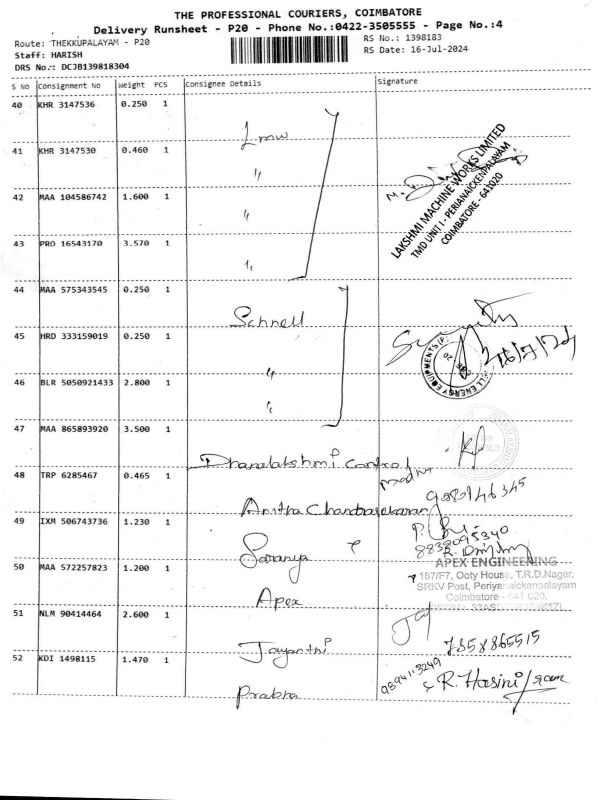 THE PROFESSIONAL COURIERS, COIMBATORE
Delivery Runsheet - P20 - Phone No.:0422-3505555 - Page No.:4
Route: THEKKUPALAYAM - P20
RS No.: 1398183
Staff: HARISH
RS Date: 16-Jul-2024
DRS No.: DCJB139818304
S No Consignment No Weight PCS Consignee Details Signature
40 KHR 3147536 0.250 1
Lmw
41 KHR 3147530 0.460 1
"
42 MAA 104586742 1.600 1
"
43 PRO 16543170 3.570 1
"
LAKSHMI MACHINE WORKS LIMITED
TMD UNIT I - PERIANAICKENPALAYAM
COIMBATORE - 641020
44 MAA 575343545 0.250 1
Schnell
45 HRD 333159019 0.250 1
"
16/7/24
46 BLR 5050921433 2.800 1
"
47 MAA 865893920 3.500 1
Dhanalakshmi
48 TRP 6285467 0.465 1
Anitha Chandrasekaran
49 IXM 506743736 1.230 1
8838095340
Saranya
50 MAA 572257823 1.200 1
APEX ENGINEERING
187/F7, Ooty House, T.R.D.Nagar,
SRKV Post, Periyanaickenpalayam
Coimbatore - 641 020.
Apex
51 NLM 90414464 2.600 1
7358865515
Jayanthi
52 KDI 1498115 1.470 1
9894113249
& R. Hasini
Prabha